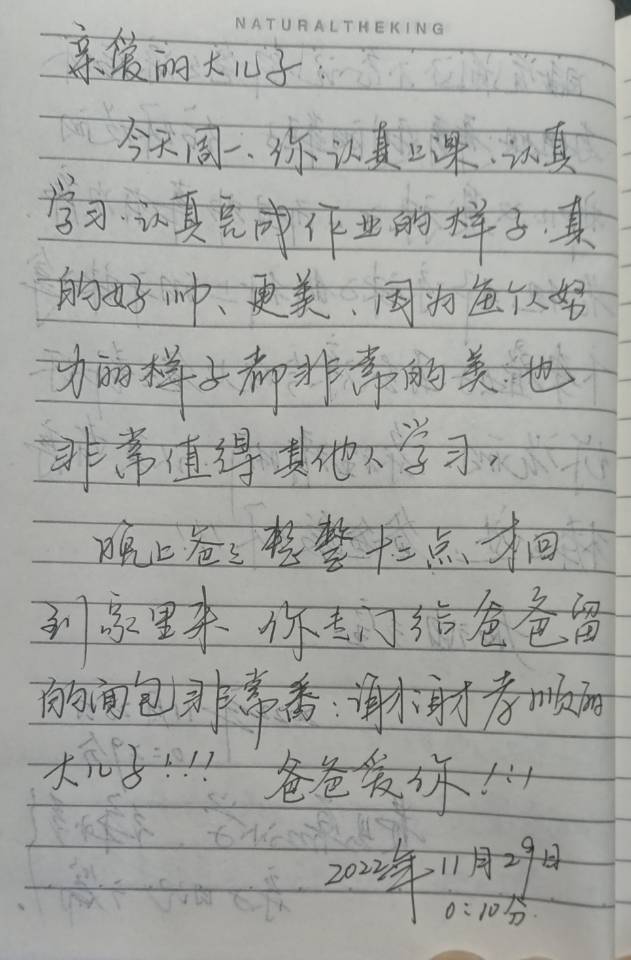 NATURALTHEKING
亲爱的大儿子
今天周一、你认真上课、认真
学习、认真完成作业的样子、真
的好帅、更美、因为每个人努
力的样子都非常的美、也
非常值得其他人学习。
晚上爸爸整整十二点、才回
到家里来、你专门给爸爸留
的面包非常香、谢谢孝顺的
大儿子!!! 爸爸爱你!!!
2022年11月29日
0:10分